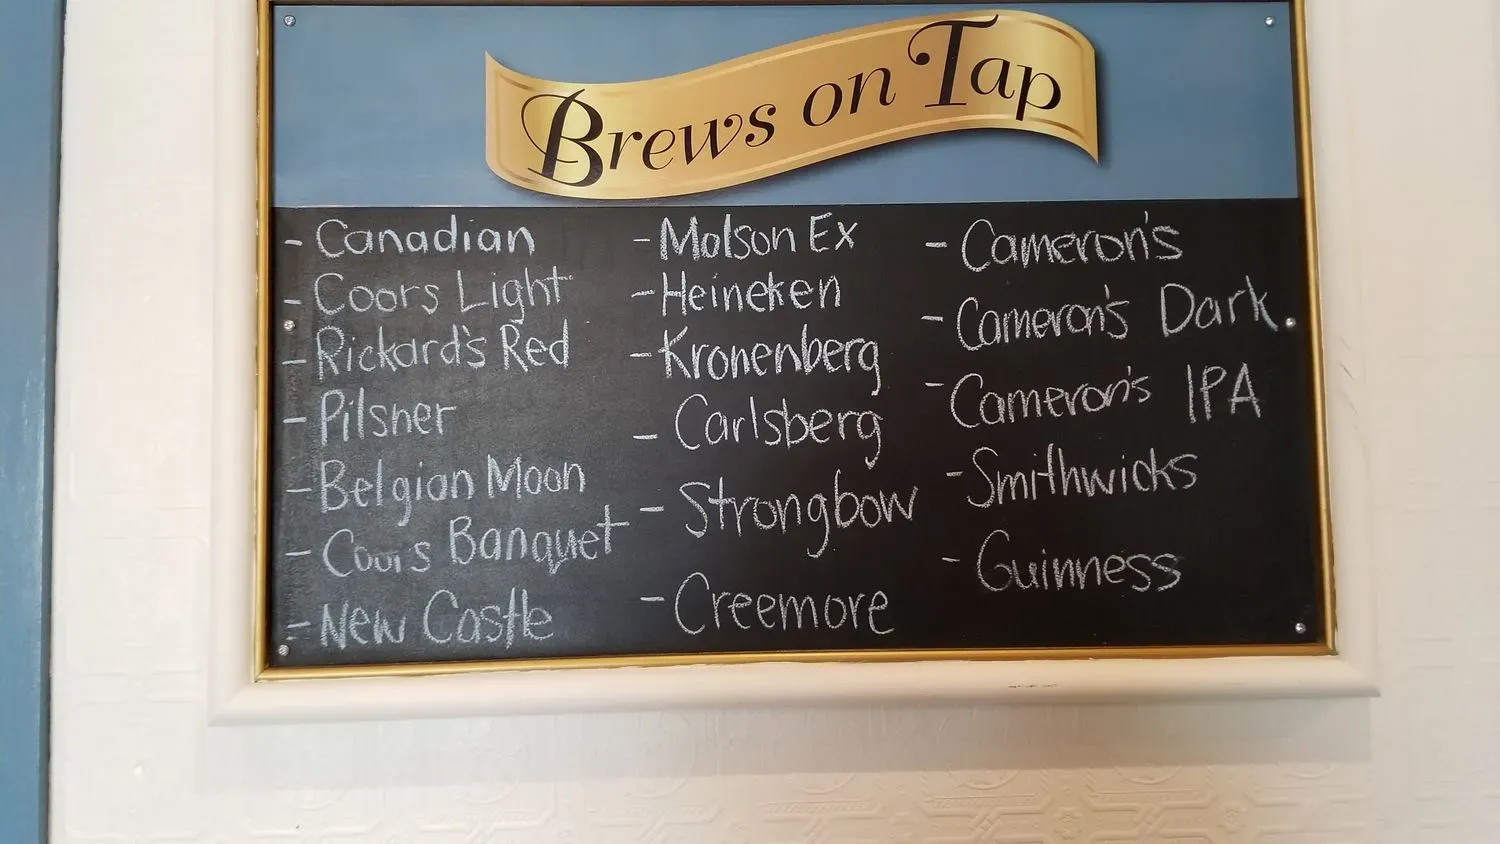 Brews on Tap
- Canadian
- Coors Light
- Rickard's Red
- Pilsner
- Belgian Moon
- Coors Banquet
- New Castle
- Molson Ex
- Heineken
- Kronenberg
- Carlsberg
- Strongbow
- Creemore
- Cameron's
- Cameron's Dark.
- Cameron's IPA
- Smithwicks
- Guinness